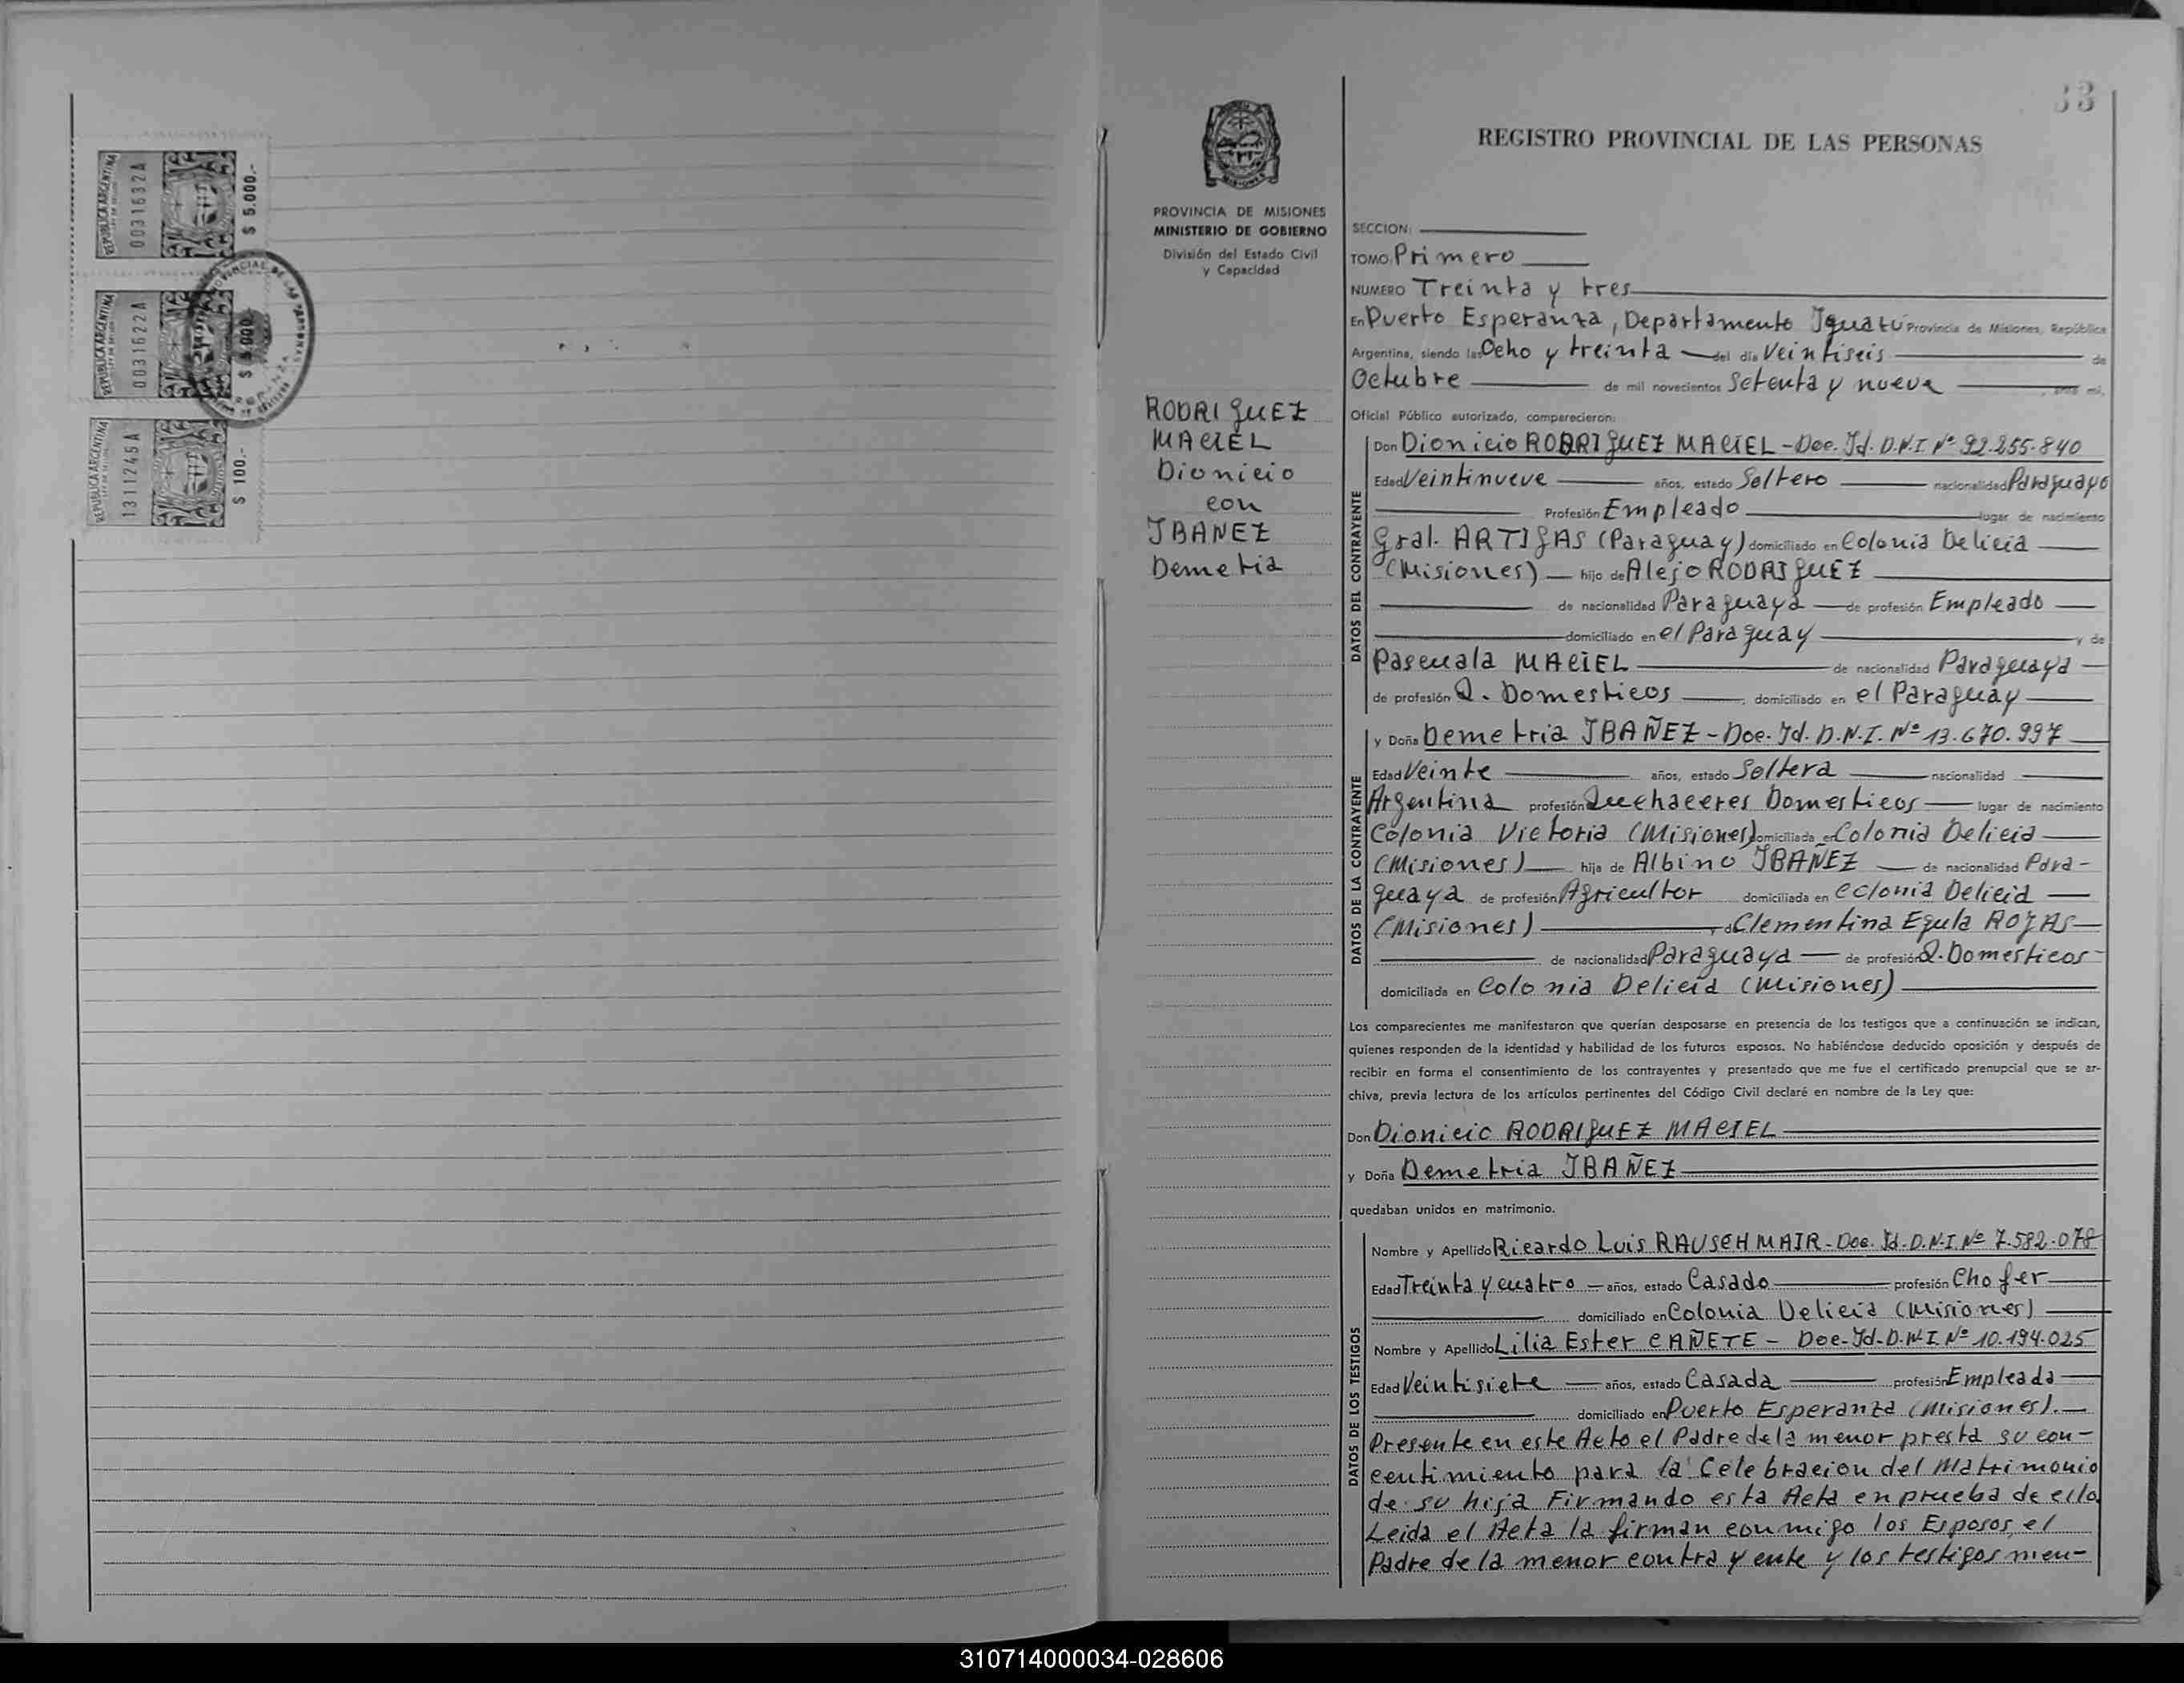 REPUBLICA ARGENTINA
0031632A
$ 5.000.-
REPUBLICA ARGENTINA
0031622A
$ 5.000
REPUBLICA ARGENTINA
1311245A
$ 100.-
33
PROVINCIA DE MISIONES
MINISTERIO DE GOBIERNO
División del Estado Civil
y Capacidad
RODRIGUEZ
MACIEL
Dionicio
con
IBAÑEZ
Demetria
REGISTRO PROVINCIAL DE LAS PERSONAS
SECCION:
TOMO: Primero
NUMERO Treinta y tres
En Puerto Esperanza, Departamento Iguazú Provincia de Misiones, República
Argentina, siendo las Ocho y treinta del día Veintiseis de
Octubre de mil novecientos Setenta y nueve, ante mi,
Oficial Público autorizado, comparecieron:
DATOS DEL CONTRAYENTE
Don Dionicio RODRIGUEZ MACIEL - Doc. Id. D.N.I. Nº 92.255.840
Edad Veintinueve años, estado Soltero nacionalidad Paraguayo
Profesión Empleado lugar de nacimiento
Gral. ARTIGAS (Paraguay) domiciliado en Colonia Delicia
(Misiones) hijo de Alejo RODRIGUEZ
de nacionalidad Paraguaya de profesión Empleado
domiciliado en el Paraguay y de
Pascuala MACIEL de nacionalidad Paraguaya
de profesión Q. Domesticos domiciliado en el Paraguay
DATOS DE LA CONTRAYENTE
y Doña Demetria IBAÑEZ - Doc. Id. D.N.I. Nº 13.670.997
Edad Veinte años, estado Soltera nacionalidad
Argentina profesión Quehaceres Domesticos lugar de nacimiento
Colonia Victoria (Misiones) domiciliada en Colonia Delicia
(Misiones) hija de Albino IBAÑEZ de nacionalidad Para-
guaya de profesión Agricultor domiciliada en Colonia Delicia
(Misiones) Clementina Egula ROJAS
de nacionalidad Paraguaya de profesión Q. Domesticos
domiciliada en Colonia Delicia (Misiones)
Los comparecientes me manifestaron que querían desposarse en presencia de los testigos que a continuación se indican,
quienes responden de la identidad y habilidad de los futuros esposos. No habiéndose deducido oposición y después de
recibir en forma el consentimiento de los contrayentes y presentado que me fue el certificado prenupcial que se ar-
chiva, previa lectura de los artículos pertinentes del Código Civil declaré en nombre de la Ley que:
Don Dionicio RODRIGUEZ MACIEL
y Doña Demetria IBAÑEZ
quedaban unidos en matrimonio.
DATOS DE LOS TESTIGOS
Nombre y Apellido Ricardo Luis RAUSCHMAIR - Doc. Id. D.N.I. Nº 7.582.078
Edad Treinta y cuatro años, estado Casado profesión Chofer
domiciliado en Colonia Delicia (Misiones)
Nombre y Apellido Lilia Ester CAÑETE - Doc. Id. D.N.I. Nº 10.194.025
Edad Veintisiete años, estado Casada profesión Empleada
domiciliado en Puerto Esperanza (Misiones).
Presente en este Acto el Padre de la menor presta su con-
centimiento para la Celebracion del Matrimonio
de su hija Firmando esta Acta en prueba de ello.
Leida el Acta la firman conmigo los Esposos, el
Padre de la menor contrayente y los testigos men-
310714000034-028606